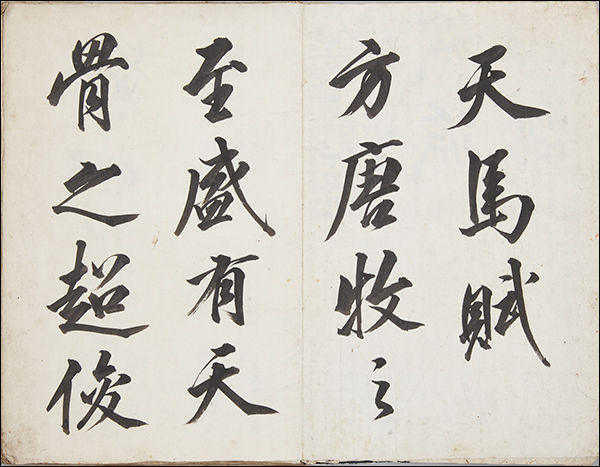 天馬賦
方唐牧之
至盛有天
骨之超俊